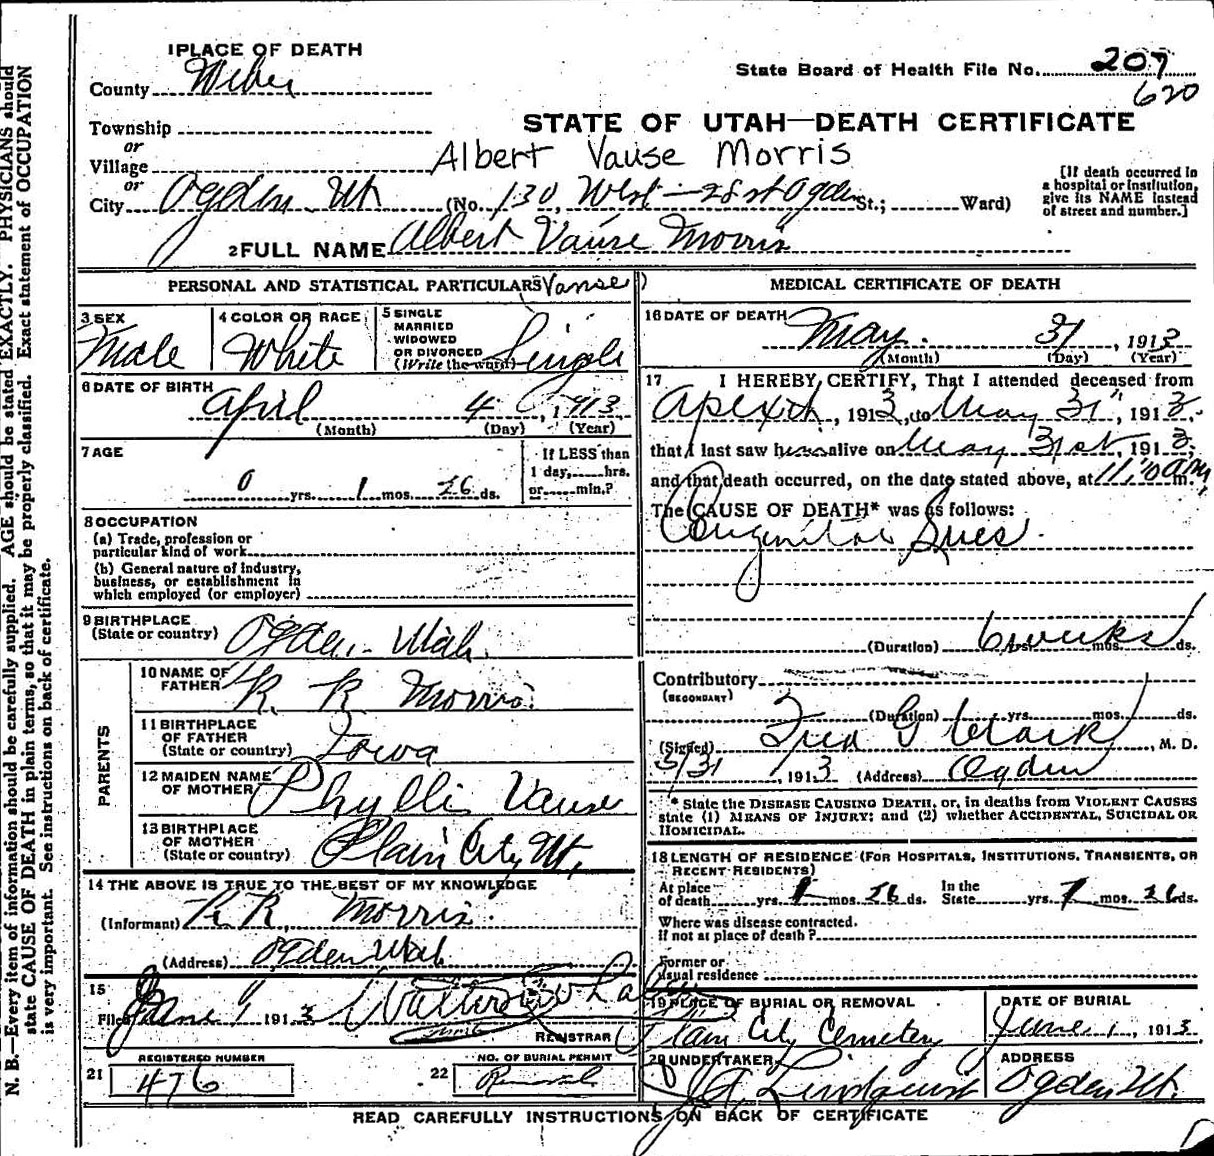 1 PLACE OF DEATH
County Weber
State Board of Health File No. 207
620
Township
or
STATE OF UTAH—DEATH CERTIFICATE
Village
Albert Vause Morris
or
City Ogden Ut (No. 130, West - 28 st Ogden St.; Ward)
[If death occurred in a hospital or institution, give its NAME instead of street and number.]
2 FULL NAME Albert Vause Morris
PERSONAL AND STATISTICAL PARTICULARS Vause
3 SEX
Male
4 COLOR OR RACE
White
5 SINGLE
MARRIED
WIDOWED
OR DIVORCED
(Write the word) Single
6 DATE OF BIRTH
April 4, 1913
(Month) (Day) (Year)
7 AGE
0 yrs. 1 mos. 26 ds.
If LESS than
1 day, hrs.
or min.?
8 OCCUPATION
(a) Trade, profession or
particular kind of work
(b) General nature of industry,
business, or establishment in
which employed (or employer)
9 BIRTHPLACE
(State or country) Ogden Utah
PARENTS
10 NAME OF
FATHER R. R. Morris
11 BIRTHPLACE
OF FATHER
(State or country) Iowa
12 MAIDEN NAME
OF MOTHER Phyllis Vause
13 BIRTHPLACE
OF MOTHER
(State or country) Plain City Ut.
14 THE ABOVE IS TRUE TO THE BEST OF MY KNOWLEDGE
(Informant) R R Morris
(Address) Ogden Utah
15
Filed June 1 1913 Walter
REGISTRAR
REGISTERED NUMBER
21 476
NO. OF BURIAL PERMIT
22 Removal
MEDICAL CERTIFICATE OF DEATH
16 DATE OF DEATH
May 31, 1913
(Month) (Day) (Year)
17 I HEREBY CERTIFY, That I attended deceased from
1913, to May 31", 1913,
that I last saw him alive on May 31st, 1913,
and that death occurred, on the date stated above, at m.
The CAUSE OF DEATH* was as follows:
Congenital Lues.
(Duration) 6 weeks yrs. mos. ds.
Contributory
(SECONDARY)
(Duration) yrs. mos. ds.
(Signed) Fred G Clark, M. D.
5/31, 1913 (Address) Ogden
* State the DISEASE CAUSING DEATH, or, in deaths from VIOLENT CAUSES
state (1) MEANS OF INJURY; and (2) whether ACCIDENTAL, SUICIDAL OR
HOMICIDAL.
18 LENGTH OF RESIDENCE (FOR HOSPITALS, INSTITUTIONS, TRANSIENTS, OR
RECENT RESIDENTS)
At place
of death yrs. 1 mos. 26 ds.
In the
State yrs. 1 mos. 26 ds.
Where was disease contracted.
If not at place of death?
Former or
usual residence
19 PLACE OF BURIAL OR REMOVAL
Plain City Cemetery
DATE OF BURIAL
June 1, 1913
20 UNDERTAKER
Lindquist
ADDRESS
Ogden Ut.
READ CAREFULLY INSTRUCTIONS ON BACK OF CERTIFICATE
N. B.—Every item of information should be carefully supplied. AGE should be stated EXACTLY. PHYSICIANS should
state CAUSE OF DEATH in plain terms, so that it may be properly classified. Exact statement of OCCUPATION
is very important. See instructions on back of certificate.